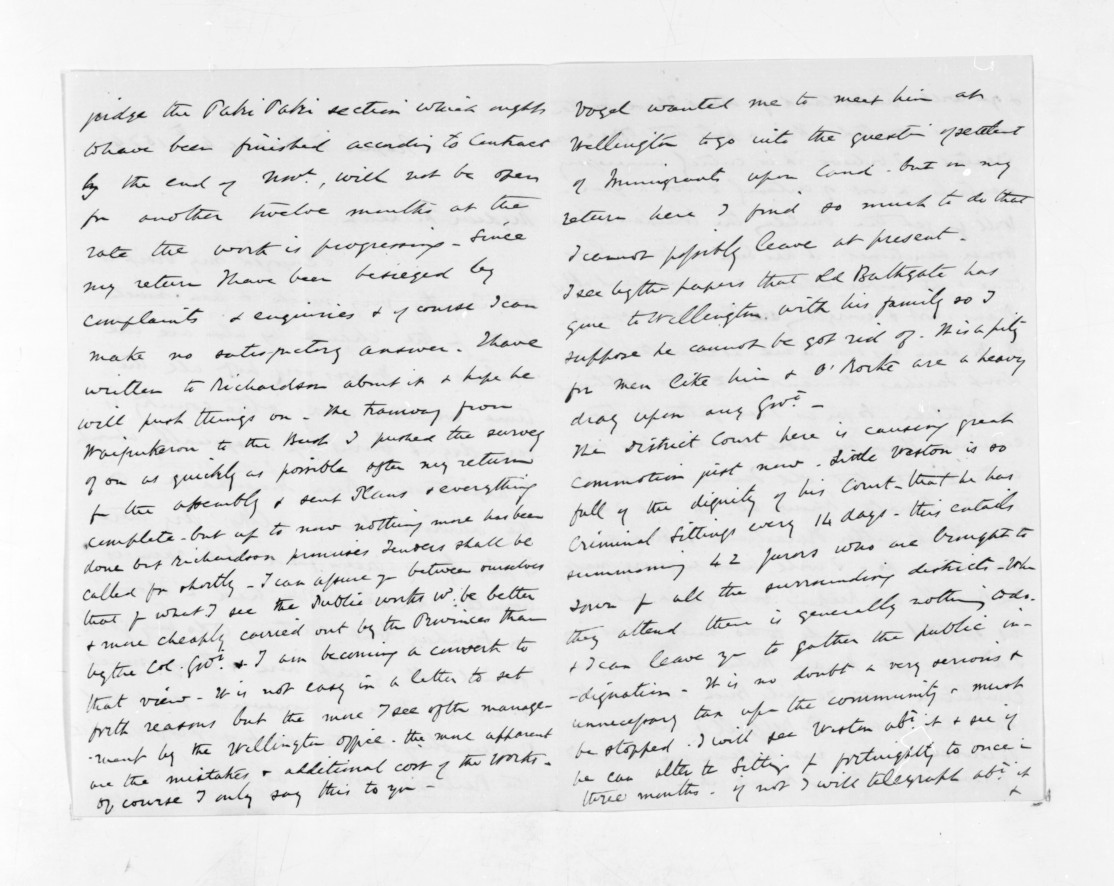 judge the Paki Paki section which ought
to have been finished according to Contract
by the end of Novr., will not be open
for another twelve months at the
rate the work is progressing - Since
my return I have been besieged by
complaints & enquiries & of course I can
make no satisfactory answer. I have
written to Richardson about it & hope he
will push things on - The tramway from
Waipukerau to the Bush I pushed the survey
of on as quickly as possible after my return
fr the assembly & sent Plans & everything
complete - but up to now nothing more has been
done but Richardson promises Tenders shall be
called for shortly - I can assure yr between ourselves
that fr what I see the Public works wd. be better
& more cheaply carried out by the Provinces than
by the Col. Govt. & I am becoming a convert to
that view - It is not easy in a letter to set
forth reasons but the more I see of the manage-
-ment by the Wellington office - the more apparent
are the mistakes & additional cost of the works -
of course I only say this to you -
Vogel wanted me to meet him at
Wellington to go into the question of settlent
of Immigrants upon land - but on my
return here I find so much to do that
I cannot possibly leave at present -
I see by the papers that Bathgate has
gone to Wellington with his family so I
suppose he cannot be got rid of. It is a pity
for men like him & O'Rorke are a heavy
drag upon any Govt. -
The District Court here is causing great
commotion just now - Little Weston is so
full of the dignity of his Court - that he has
Criminal Sittings every 14 days - this entails
summoning 42 Jurors who are brought to
Town fr all the surrounding districts - When
they attend there is generally nothing to do -
& I can leave yr to gather the public in-
-dignation - It is no doubt a very serious &
unnecessary tax upon the community & must
be stopped. I will see Weston abt. it & see if
he can alter the Sittings fr fortnightly to once in
three months - if not I will telegraph abt. it
&